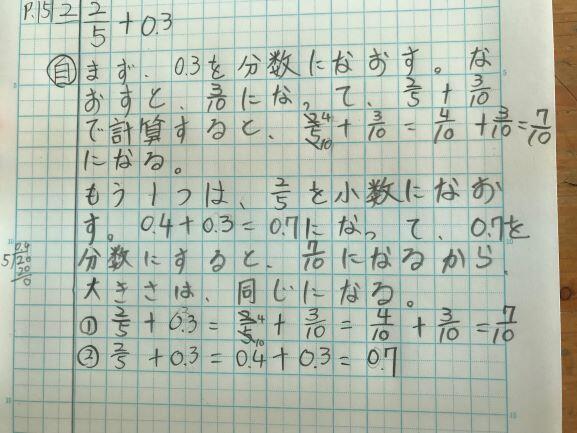 P.15 2 2/5 + 0.3
自 まず、0.3を分数になおす。な
おすと、3/10になって、2/5 + 3/10
で計算すると、2/5 4/10 + 3/10 = 4/10 + 3/10 = 7/10
になる。
もう1つは、2/5を小数になお
す。0.4+0.3=0.7になって、0.7を
分数にすると、7/10になるから、
大きさは、同じになる。
① 2/5 + 0.3 = 2/5 4/10 + 3/10 = 4/10 + 3/10 = 7/10
② 2/5 + 0.3 = 0.4 + 0.3 = 0.7
0.4
5)20
20
0